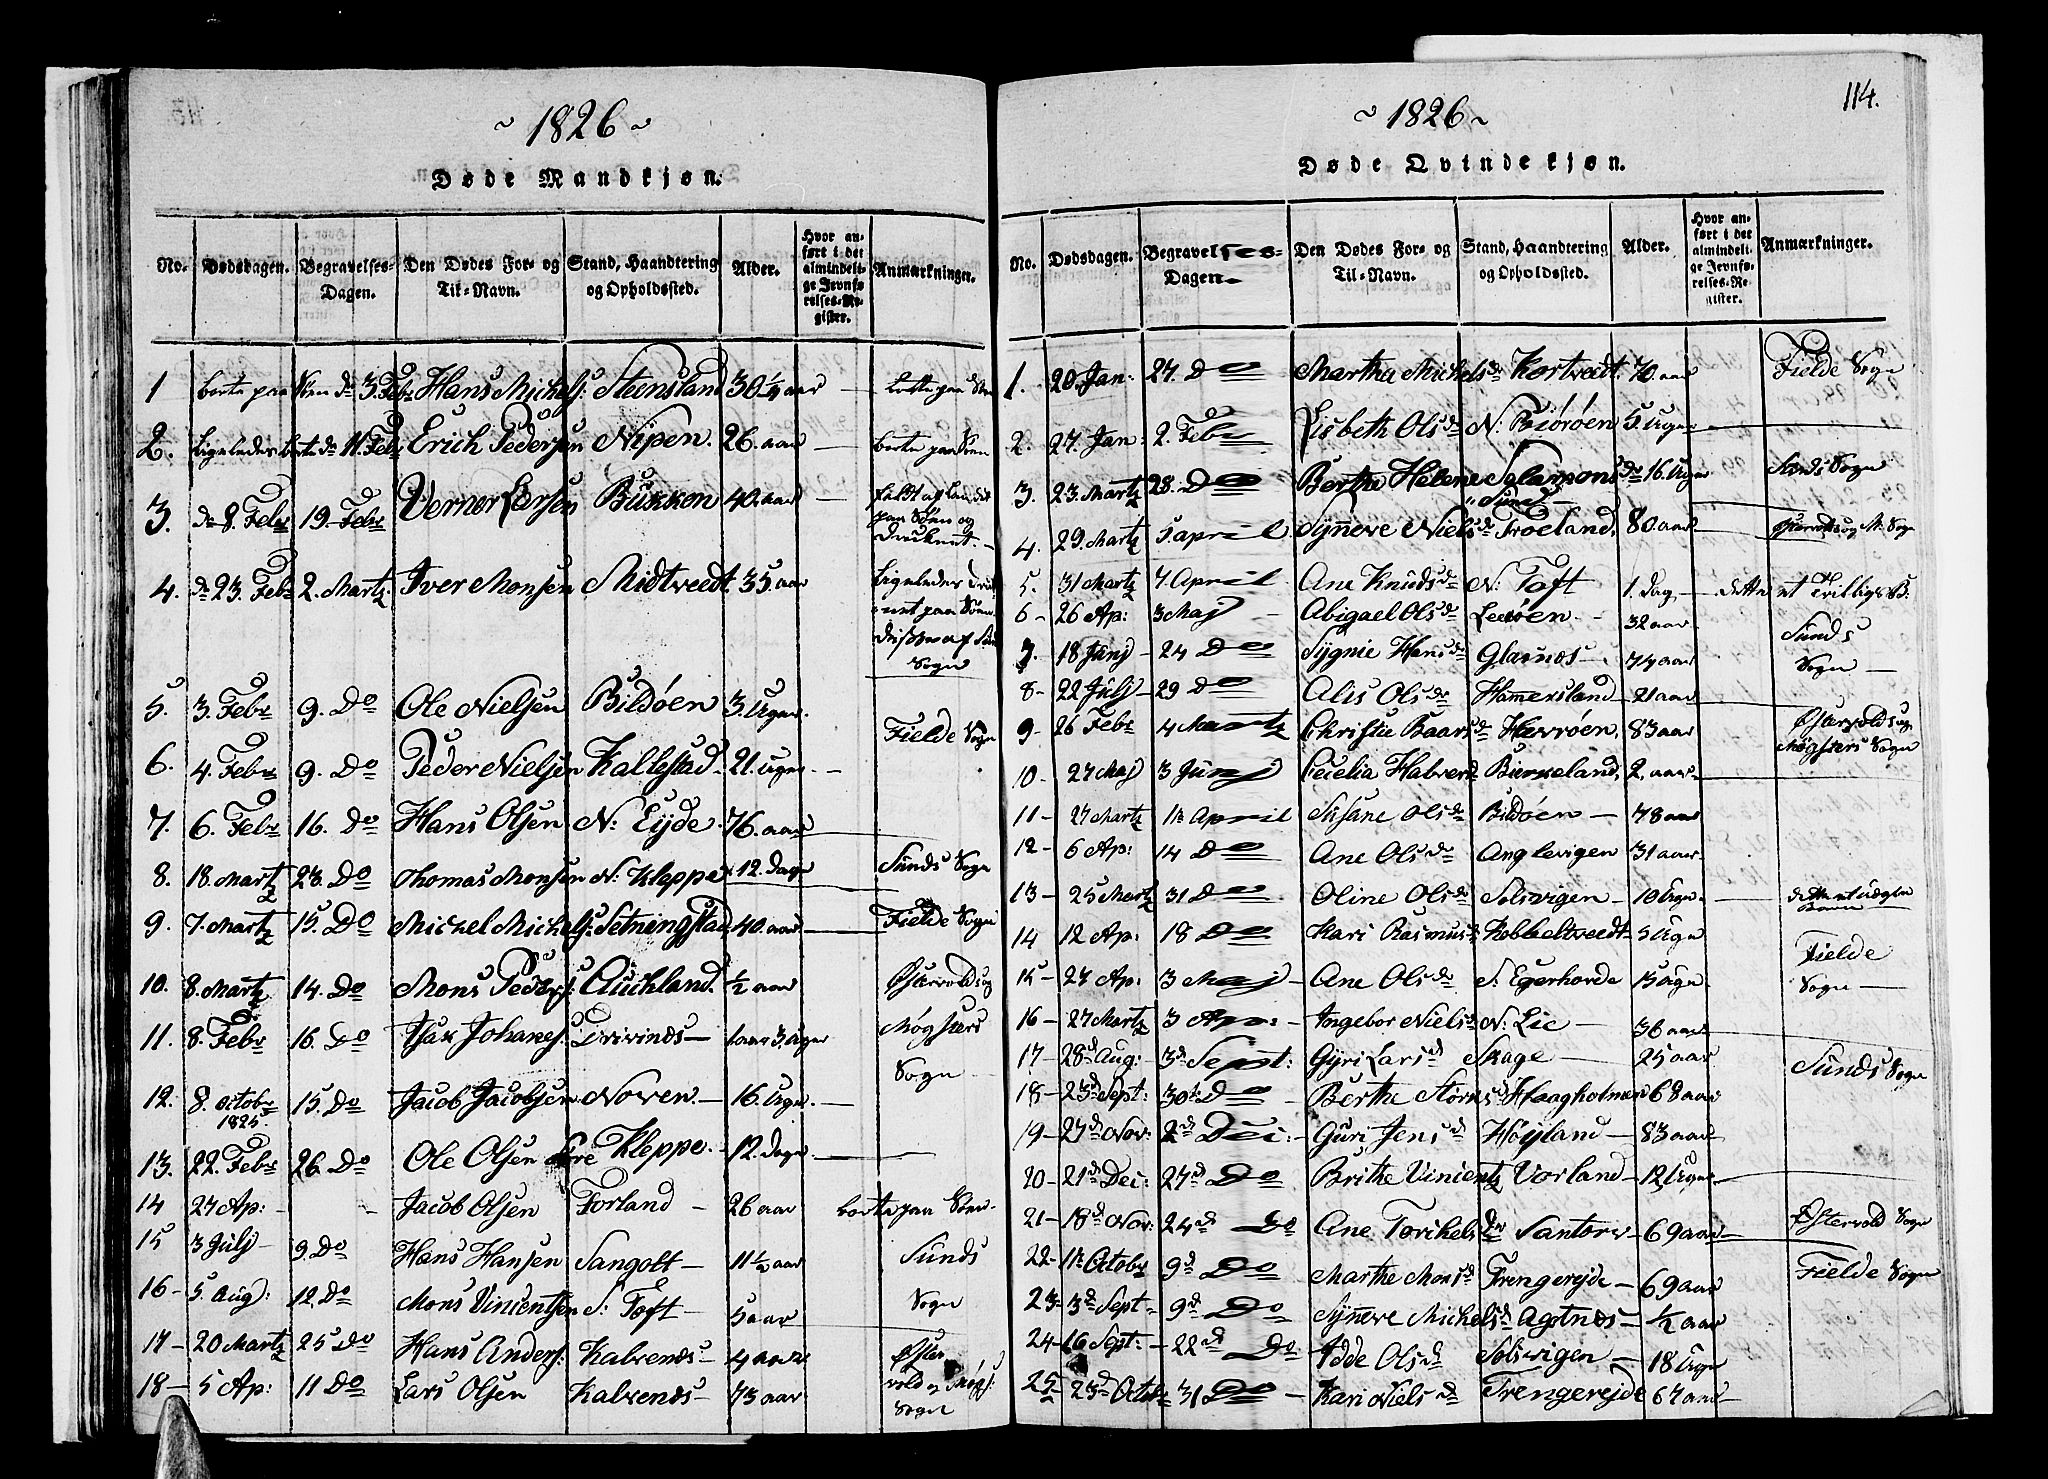 ~ 1826 ~
Døde Mandkjøn.
No. Dødsdagen. Begravelses-Dagen. Den Dødes For- og Til-Navn. Stand, Haandtering og Opholdssted. Alder. Hvor anført i det almindelige Jevnførelses-Register. Anmærkninger.
1 borte paa Søen dn 3. Febr Hans Michels: Steensland 30 1/4 aar — borte paa Søen
2. Ligeledes borte dn 11. Febr Erich Pedersen Nipen. 26. aar — borte paa Søen
3. dn 8. Febr 19. Febr Verner Larsen Bukken 40. aar —
4. dn 23. Febr 2. Martz Iver Monsen Midtveedt. 35. aar
Sogn
5. 3. Febr 9. Do Ole Nielsen Bildøen 3. Uger.
Fielde Sogn
6. 4. Febr 9. Do Peder Nielsen Kallestad. 21. Uger —
7. 6. Febr 16. Do Hans Olsen N: Eyde. 76. aar
8. 18. Martz 23. Do Thomas Monsen N: Kleppe 12. Dage Sunds Sogn
9. 7. Martz 15. Do Michel Michels: Setningstad 40. aar — Fielde Sogn
10. 8. Martz 14. Do Mons Peders: Auchland. 1/2 aar Østervolds og
11. 8. Febr 16. Do Isax Johanes: Drivinds — 1 aar 3. Uger Møgsters
Sogn
12. 8. Octobr 1825. 15. Do Jacob Jacobsen Noven — 16 Uger. —
13. 22. Febr 26. Do Ole Olsen Kleppe. — 12. Dage —
14 27 Ap: — Jacob Olsen Forland — 26 aar borte paa Søen.
15 3 Julj — 9. Do Hans Hansen Sangolt — 11 1/2 aar Sunds
16 — 5. Aug: 12. Do Mons Vincentsen S: Toft — 5 aar Sogn
17 — 20 Martz 25 Do Hans Anders: Kalvenes — 4 aar Øster
18 — 5 Ap: 11 Do Lars Olsen Kalvenes — 73 aar vold og Møgs:
Sogn
114.
~ 1826 ~
Døde Qvindekjøn.
No. Dødsdagen. Begravelses-Dagen. Den Dødes For- og Til-Navn. Stand, Haandtering og Opholdssted. Alder. Hvor anført i det almindelige Jevnførelses-Register. Anmærkninger.
1. 20. Jan: 27. Do Martha Michelsd Kortvedt. 70. aar Fielde Sogn
2. 27. Jan: 2. Febr Lisbeth Olsd N. Biørøen 5. Uger —
3. 23. Martz 28. Do Berthe Helene Salamonsd „Sund — 16. Uger Sunds Sogn
4. 29. Martz 5 april Synneve Nielsd Troeland. 80. aar — Østervolds og M: Sogn
5. 31 Martz 7. April Ane Knudsd N: Toft 1. Dag — dette et Tvillige B:
6 — 26 Ap: 3 Maj — Abigael Olsd Leerøen — 32 aar
Sunds
7. 18 Junj — 24 Do Sygnie Hansd Glasnes — 74 aar Sogn —
8 — 22 Julj — 29 Do Alis Olsd Hammersland — 21 aar
9 — 26 Febr 4 Martz Christie Baarsd Herrøen. 83 aar Østervolds og
Møgsters Sogn
10 — 27 Maj 3 Junj Cecelia Halversd Birkeland. 2. aar —
11 — 27 Martz 1te April Susane Olsd Bildøen — 78 aar
12 — 6 Ap: 14 Do Ane Olsd Anglevigen 31 aar.
13 — 25 Martz 31 Do Oline Olsd Solsvigen — 10 Uger — dette et uægte Barn
14 12 Ap: 18 Do Kari Rasmusd Kobbeltveedt — 5 Uger
Fielde
15 — 27 Ap: 3 Maj — Ane Olsd S: Egerhovde 15 Uger Sogn —
16 — 27 Martz 3 Ap: — Ingebor Nielsd N: Lie — 36 aar
17 — 28d Aug: 3d Sept: Gyri Larsd Skage — 25 aar Sunds Sogn
18 — 23d Sept: 30te Do — Berthe Størksd Haagholmen 68 aar
19 — 27d Nov: 2d Dec: — Guri Jensd Høyland — 83 aar —
20 — 21d Dec: 27d Do Brithe Vincentz Vorland — 12 Uger —
21 — 18d Nov: 24d Do Ane Torchelsd Santorv — 69 aar — Østervold Sogn
22 — 1te Octobr 9d Do Marthe Monsd Trengereyde — 69 aar Fielde Sogn
23 — 3d Sept — 9d Do Synneve Michelsd Agotnes — 1/2 aar
24 — 16 Sept: — 22d Do Idde Olsd Solsvigen — 18 Uger
25 — 23d Octobr 31 Do — Kari Nielsd Trengereyde 67 aar —